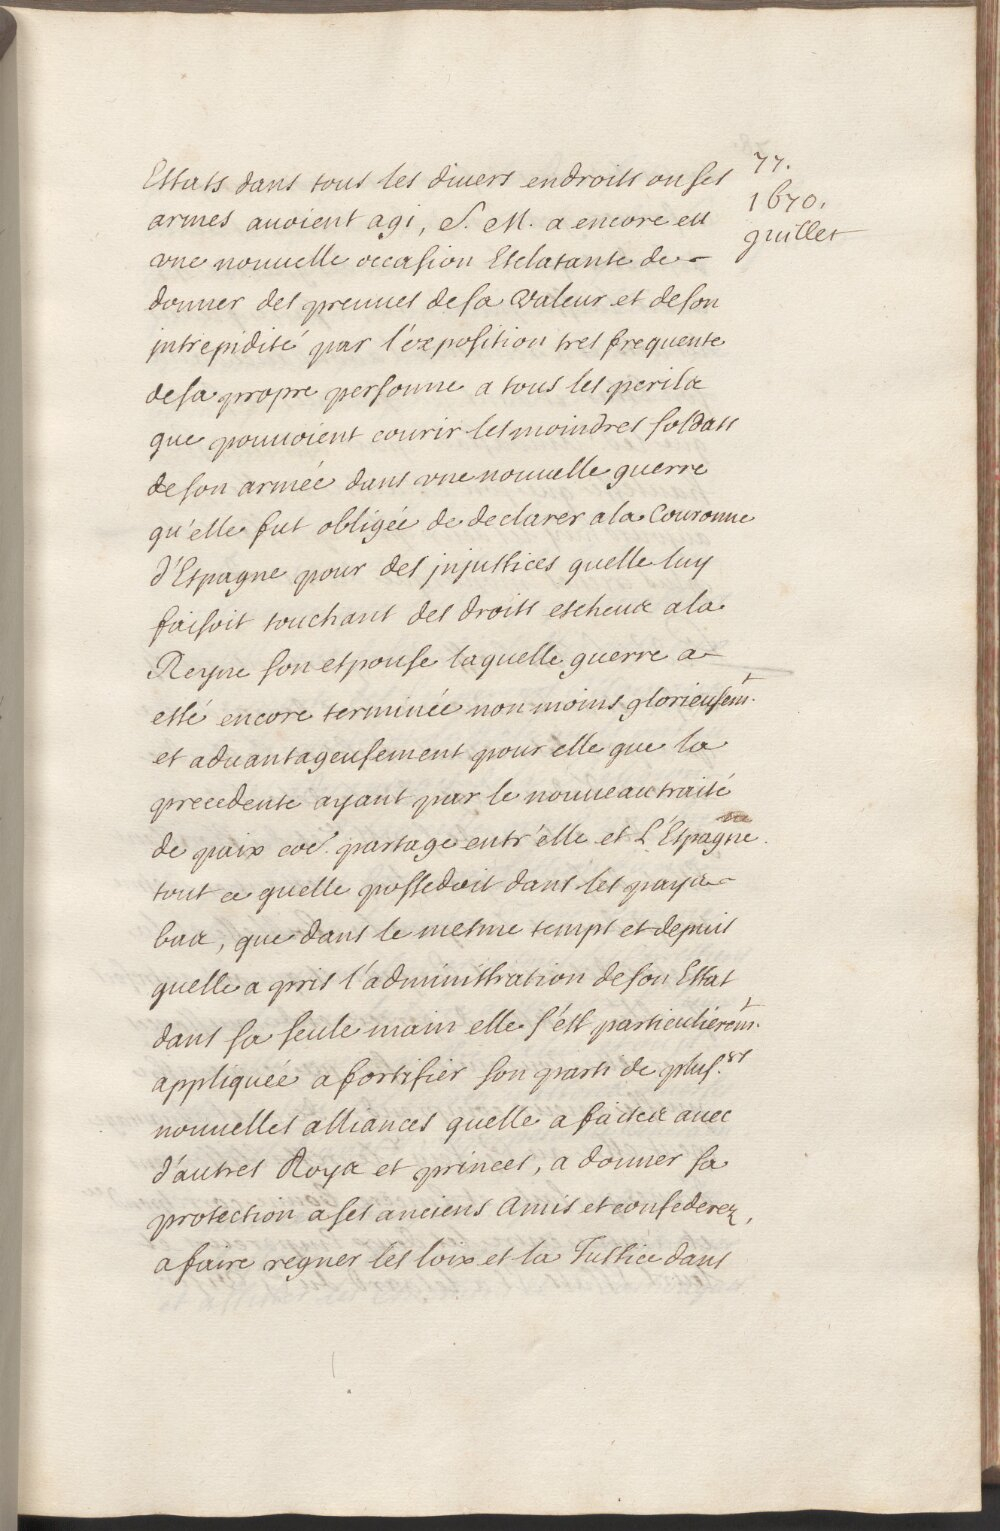 77.
1670.
Juillet
Estats dans tous les divers endroits ou ses
armes auoient agi, S. M. a encore eu
vne nouuelle occasion Esclatante de
donner des preuues de sa valeur et de son
jntrepidité par l'exposition tres frequente
de sa propre personne a tous les perils
que pouuoient courir les moindres soldats
de son armée dans vne nouuelle guerre
qu'elle fut obligée de declarer a la Couronne
d'Espagne pour des jnjustices quelle luy
faisoit touchant des droits escheux a la
Reyne son espouse laquelle guerre a
esté encore terminée non moins glorieusemt.
et aduantageusement pour elle que la
precedente ayant par le nouueau traité
de paix partage entr'elle et L'Espagne
tout ce quelle possedoit dans les pays
bas, que dans le mesme temps et depuis
quelle a pris l'administration de son Estat
dans sa seule main elle s'est particulieremt.
appliquée a fortifier son parti de plus.rs
nouuelles alliances quelle a faites auec
d'autres Roys et princes, a donner sa
protection a ses anciens Amis et confederez,
a faire regner les loix et la Justice dans